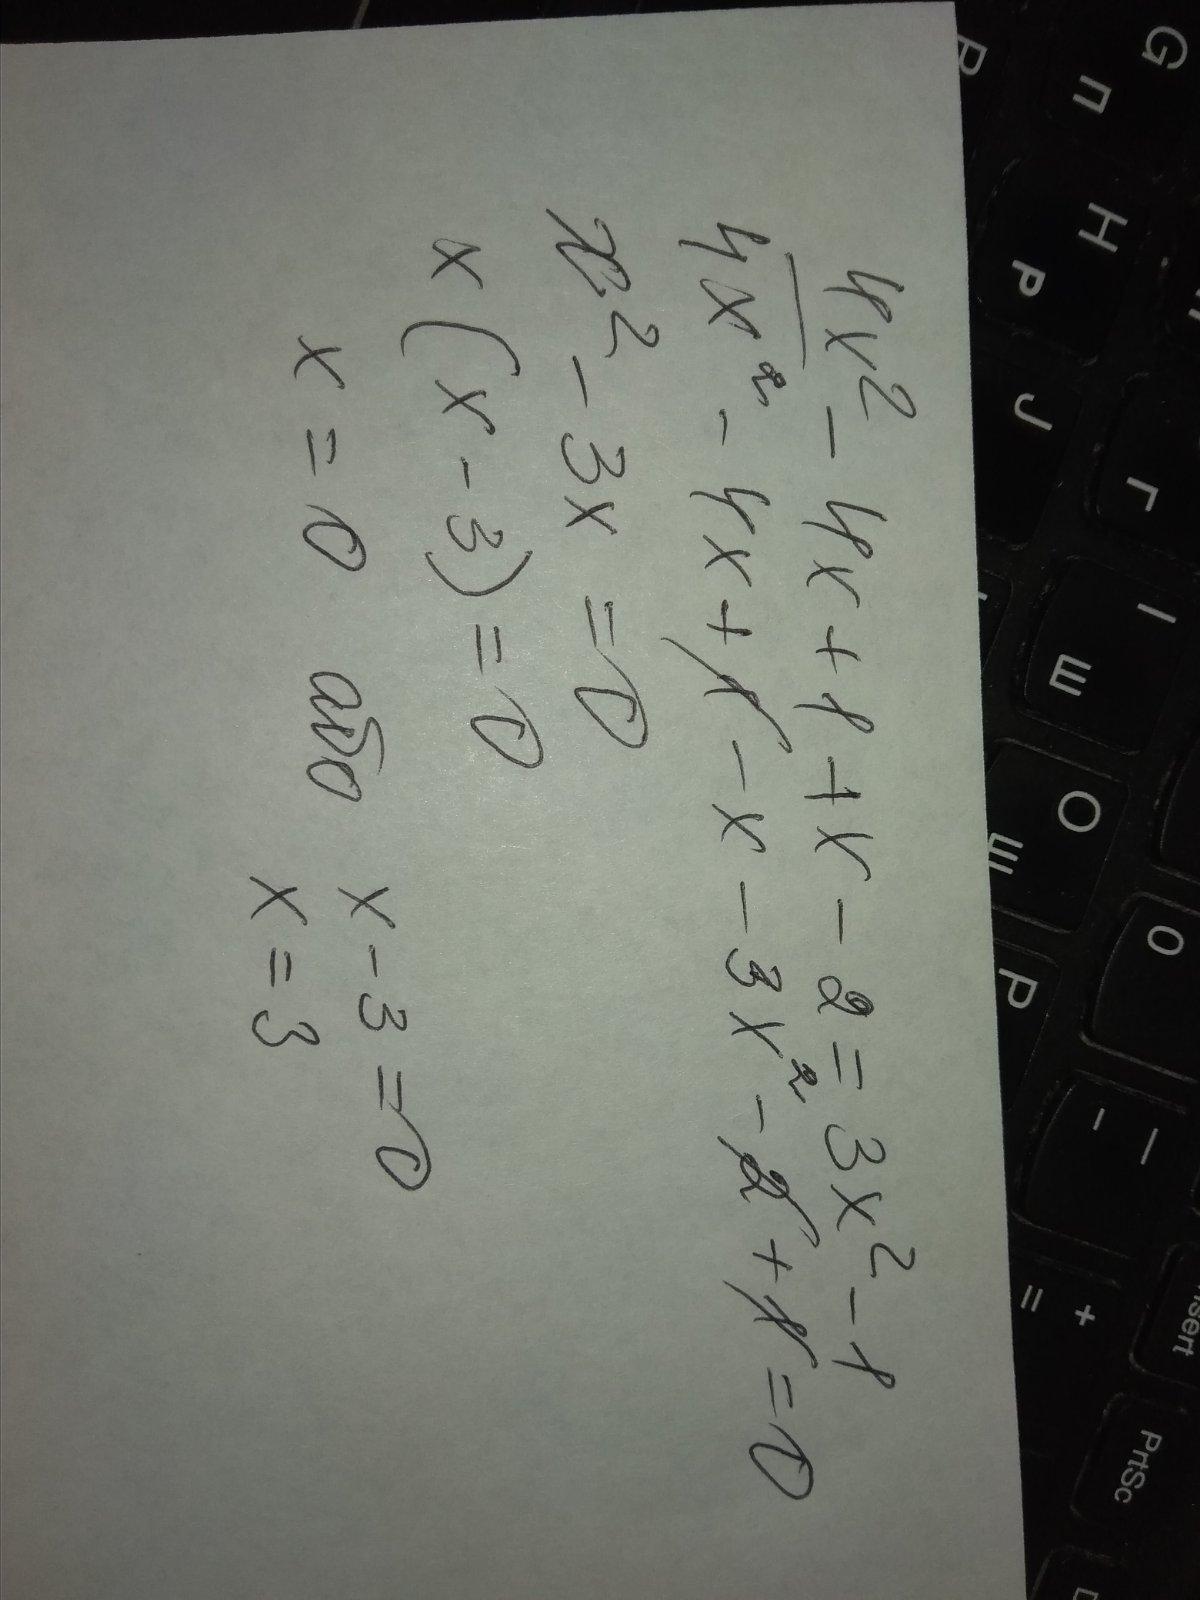 4x² - 4x + 1 + x - 2 = 3x² - 1
4x² - 4x + 1 - x - 3x² - 2 + 1 = 0
x² - 3x = 0
x(x - 3) = 0
x = 0 або x - 3 = 0
x = 3
G П
H Р
J
Г
I Ш
O Щ
О
P
- _
+ =
PrtSc